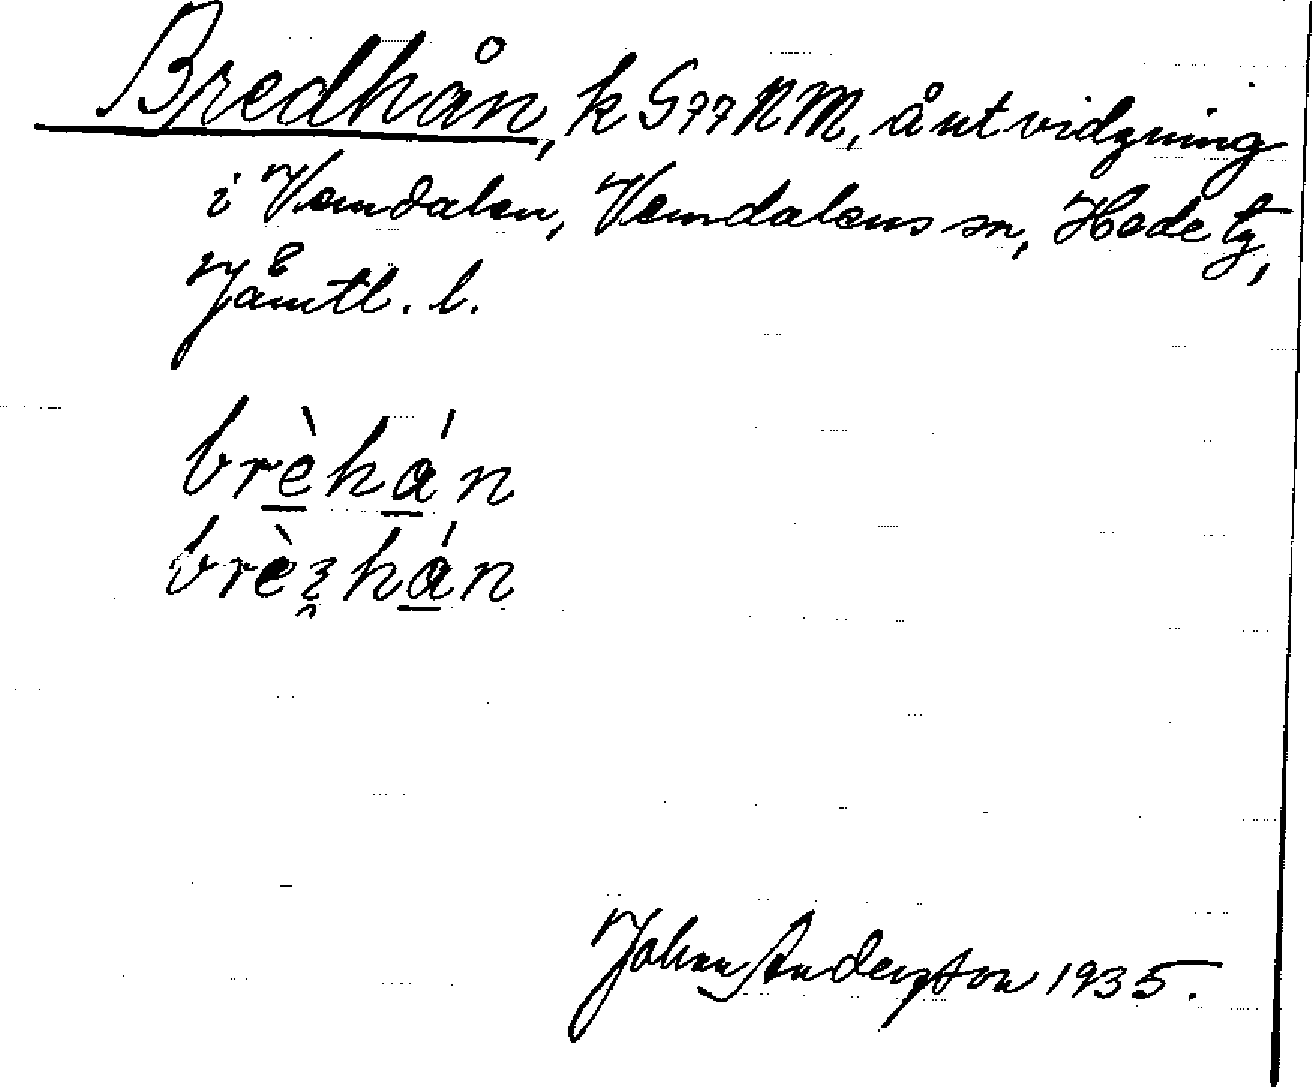 Bredhån, k G77 NM, åutvidgning
i Vemdalen, Vemdalens sn, Hede tg,
Jämtl. l.
brèhán
brèʒhán
Johan Andersson 1935.